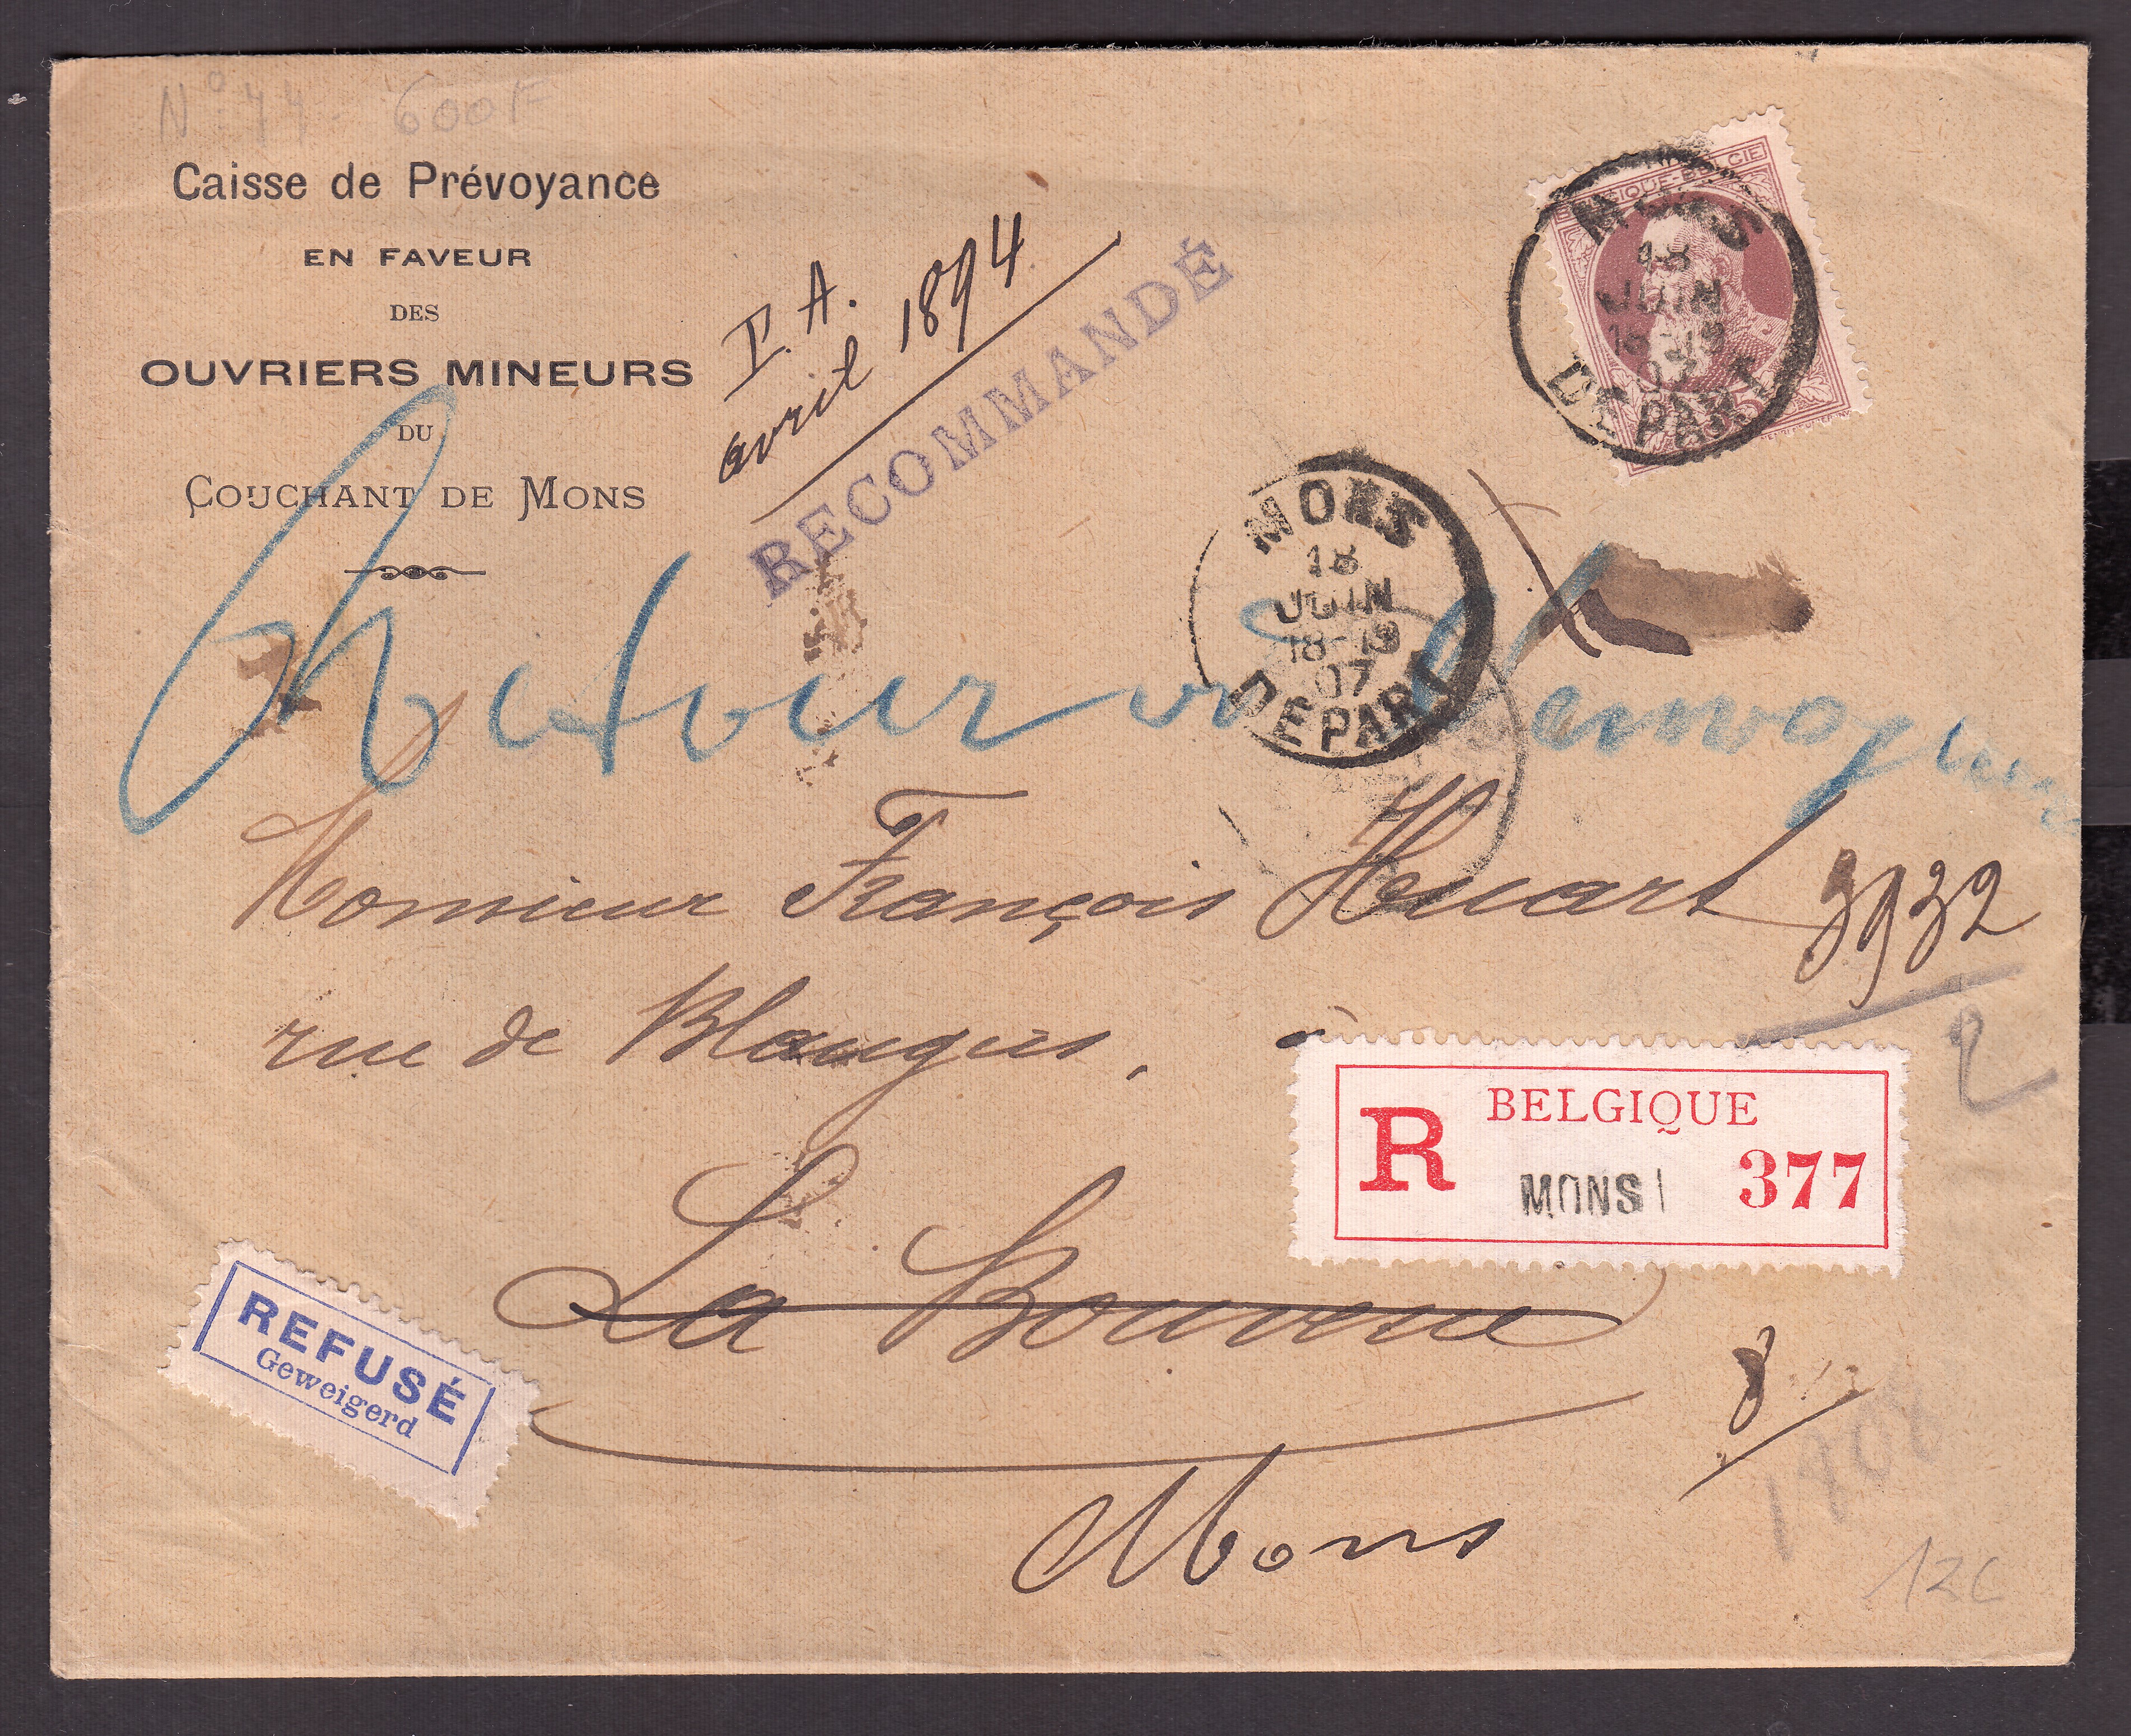 N° 44 - 600 F
Caisse de Prévoyance
EN FAVEUR
DES
OUVRIERS MINEURS
DU
COUCHANT DE MONS
avril 1894
RECOMMANDÉ
BELGIQUE-BELGIE
MONS
18
JUIN
18-19
07
DEPART
35
MONS
18
JUIN
18-19
07
DEPART
Retour à l'envoyeur
Monsieur François Huart 3932
2
rue de Blaugies, à
R BELGIQUE
MONS 1 377
La Bouverie
REFUSÉ
Geweigerd
8
1908
Mons
12C